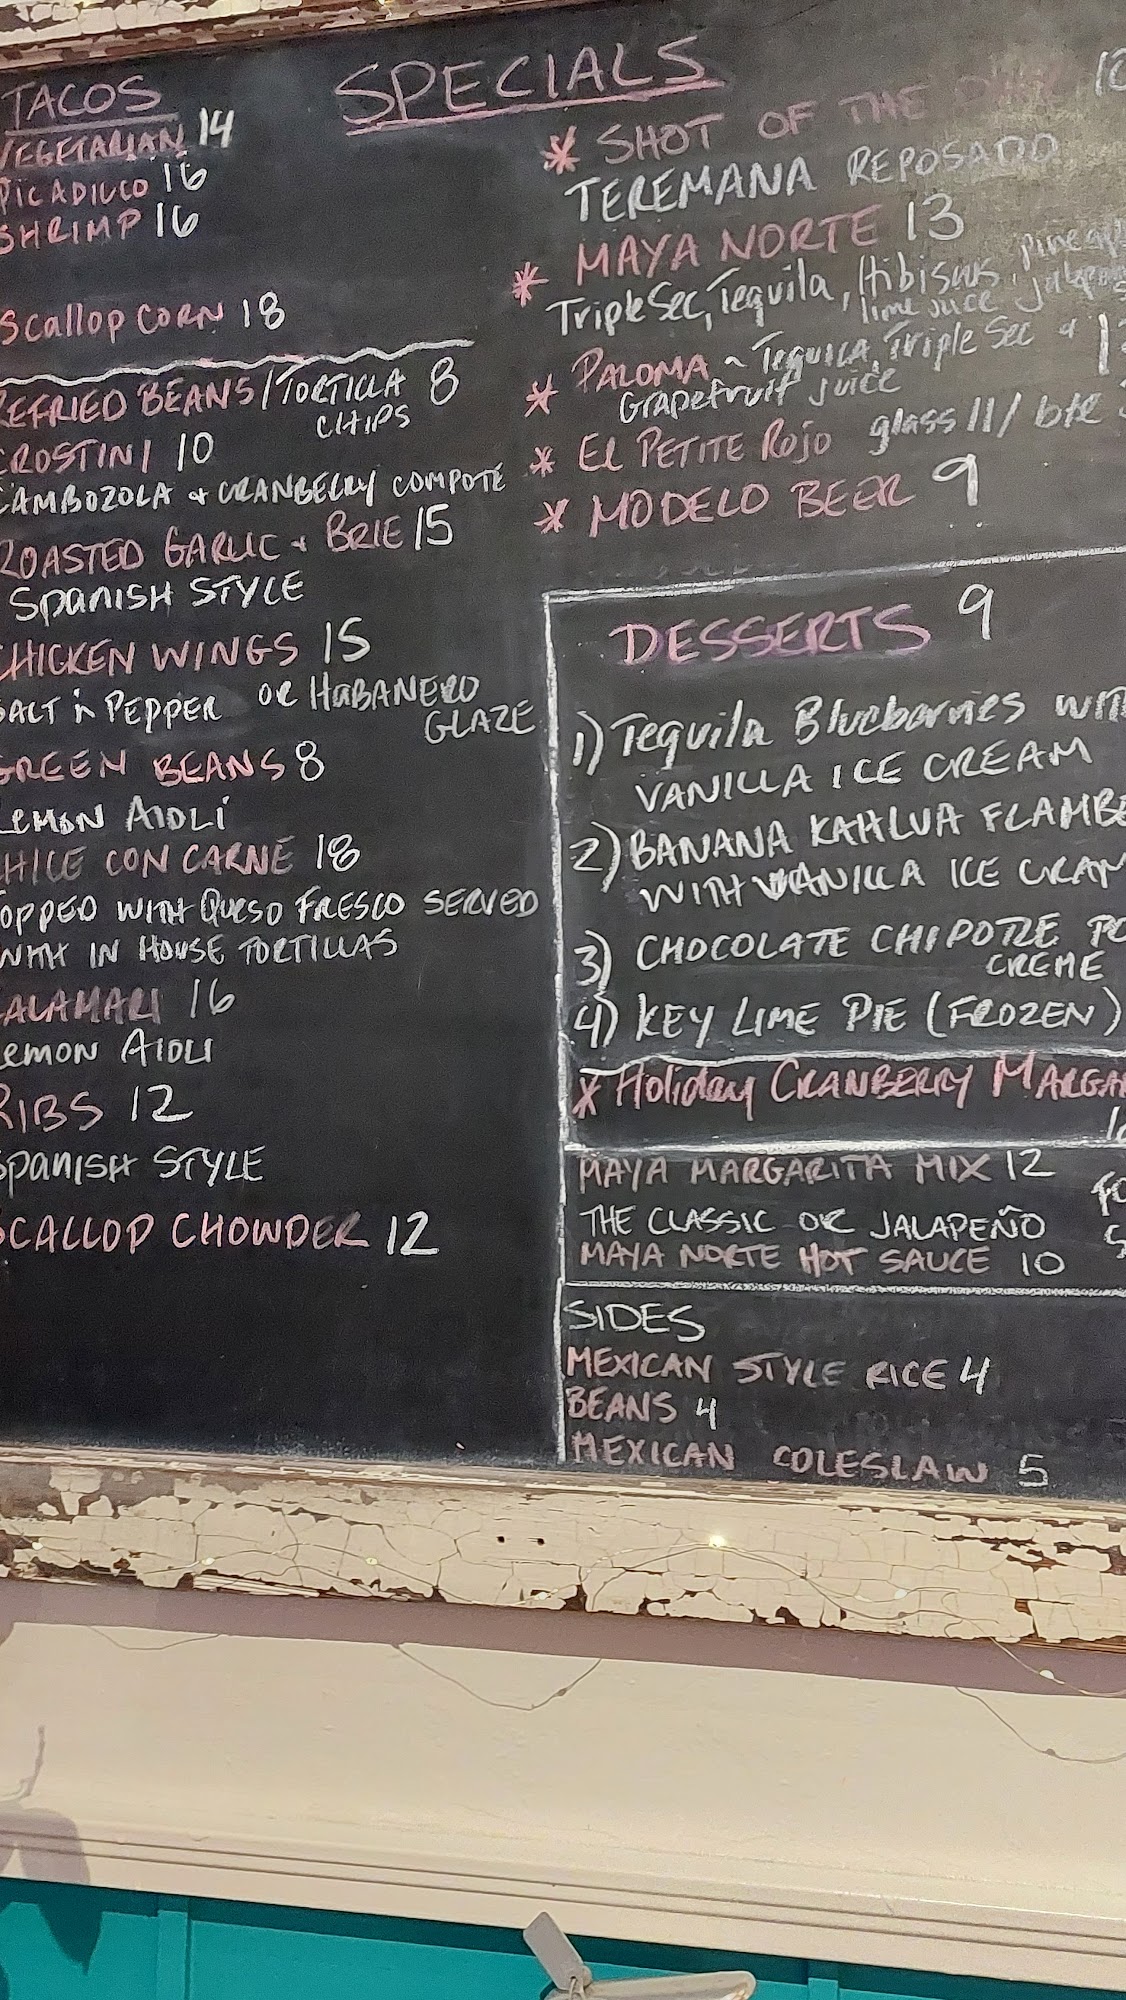 SPECIALS
TACOS
VEGETARIAN 14
PICADILLO 16
SHRIMP 16
Scallop CORN 18
REFRIED BEANS/TORTILLA CHIPS 8
CROSTINI 10
CAMBOZOLA + CRANBERRY COMPOTE
ROASTED GARLIC + BRIE 15
SPANISH STYLE
CHICKEN WINGS 15
SALT n PEPPER OR HABANERO
GLAZE
GREEN BEANS 8
LEMON AIOLI
CHILE CON CARNE 18
TOPPED WITH QUESO FRESCO SERVED
WITH IN HOUSE TORTILLAS
CALAMARI 16
Lemon AIOLI
RIBS 12
SPANISH STYLE
SCALLOP CHOWDER 12
* SHOT OF THE
TEREMANA REPOSADO
* MAYA NORTE 13
Triple Sec, Tequila, Hibiscus,
lime juice
* PALOMA ~ TEQUILA, Triple Sec +
Grapefruit juice
* El PETITE Rojo glass 11/ btl
* MODELO BEER 9
DESSERTS 9
1) Tequila Blueberries
VANILLA ICE CREAM
2) BANANA KAHLUA
WITH VANILLA ICE
3) CHOCOLATE CHIPOTLE
CREME
4) KEY LIME PIE (FROZEN)
* Holiday CRANBERRY
MAYA MARGARITA MIX 12
THE CLASSIC OR JALAPEÑO
MAYA NORTE HOT SAUCE 10
SIDES
MEXICAN STYLE RICE 4
BEANS 4
MEXICAN COLESLAW 5